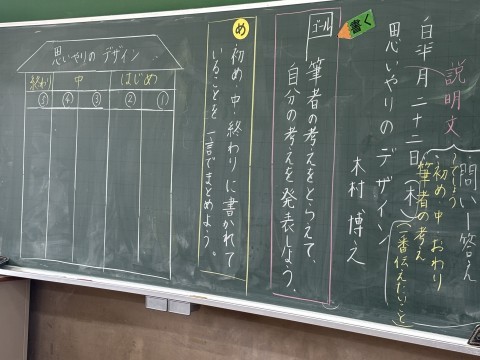 説明文
問い―答え
〜でしょう
・初め 中 おわり
・筆者の考え
(一番伝えたいこと)
月 二十二日(木)
思いやりのデザイン
木村 博え
書く
ゴール
筆者の考えをとらえて、
自分の考えを発表しよう。
め
初め・中・終わりに書かれて
いることを一言でまとめよう。
思いやりのデザイン
はじめ
中
終わり
①
②
③
④
⑤